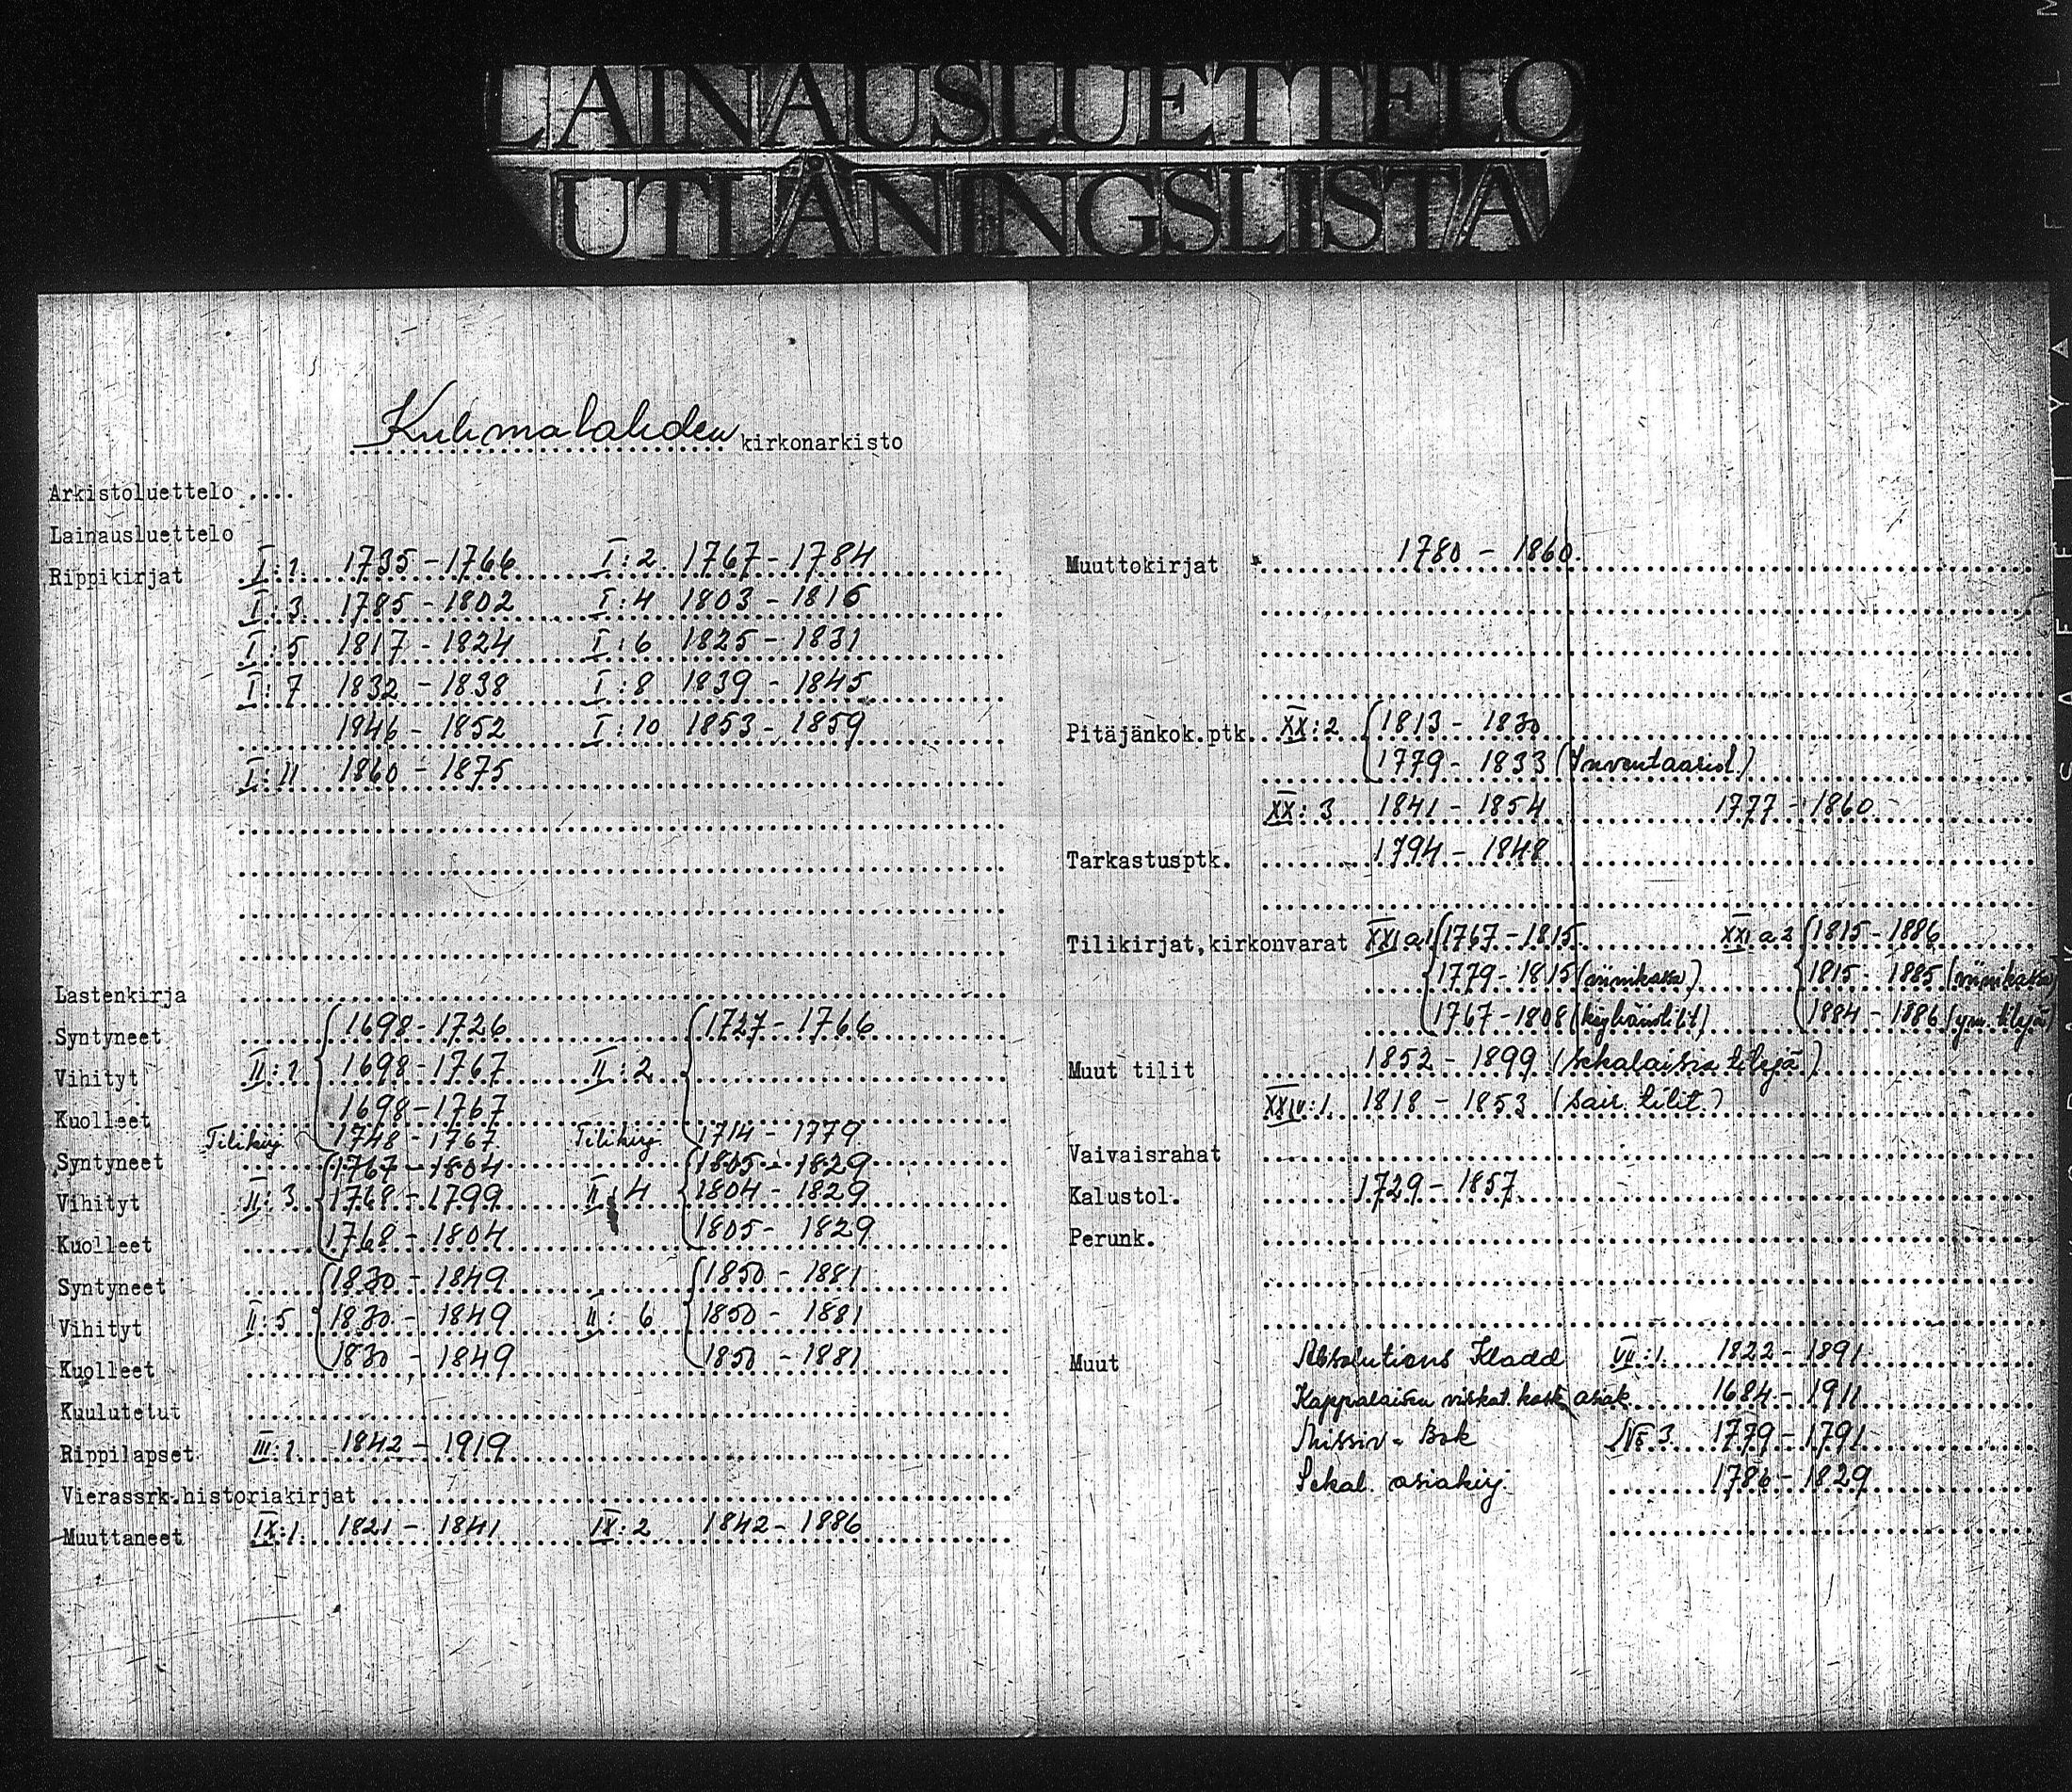 LAINAUSLUETTELO
UTLÅNINGSLISTA
Kuhmalahden kirkonarkisto
Arkistoluettelo ....
Lainausluettelo
Rippikirjat I:1. 1735-1766 I:2 1767-1784
I:3 1785-1802 I:4 1803-1816
I:5 1817-1824 I:6 1825-1831
I:7 1832-1838 I:8 1839-1845
1946-1852 I:10 1853-1859
I:11 1860-1875
Lastenkirja
Syntyneet 1698-1726 1727-1766
Vihityt II:1 1698-1767 II:2
Kuolleet 1698-1767
Tilikirj. 1748-1767 Tilikirj. 1714-1779
Syntyneet 1767-1804 1805-1829
Vihityt II:3 1768-1799 II:4 1804-1829
Kuolleet 1768-1804 1805-1829
Syntyneet 1830-1849 1850-1881
Vihityt II:5 1830-1849 II:6 1850-1881
Kuolleet 1830-1849 1850-1881
Kuulutetut
Rippilapset III:1. 1842-1919
Vierassrk.historiakirjat
Muuttaneet IX:1. 1821-1841 IX:2 1842-1886
Muuttokirjat 1780-1860.
Pitäjänkok.ptk. XX:2 1813-1830
1779-1833 (Inventaariol.)
XX:3 1841-1854 1777-1860
Tarkastusptk. 1794-1848
Tilikirjat,kirkonvarat XXI a1 1767-1815 XXI a2 1815-1886
1779-1815 (viinikassa) 1815-1885 (viinikassa)
1767-1808 (köyhäintilit) 1884-1886 (ym. tilejä)
Muut tilit 1852-1899 (sekalaisia tilejä)
XXIV:1. 1818-1853 (Sair. tilit.)
Vaivaisrahat
Kalustol. 1729-1857
Perunk.
Muut Absolutions Kladd VII:1. 1822-1891
Kappalaisen virkat. kosk. asiak. 1684-1911
Missiv-Bok No 3 1779-1791
Sekal. asiakirj. 1786-1829
SAFETY FILM